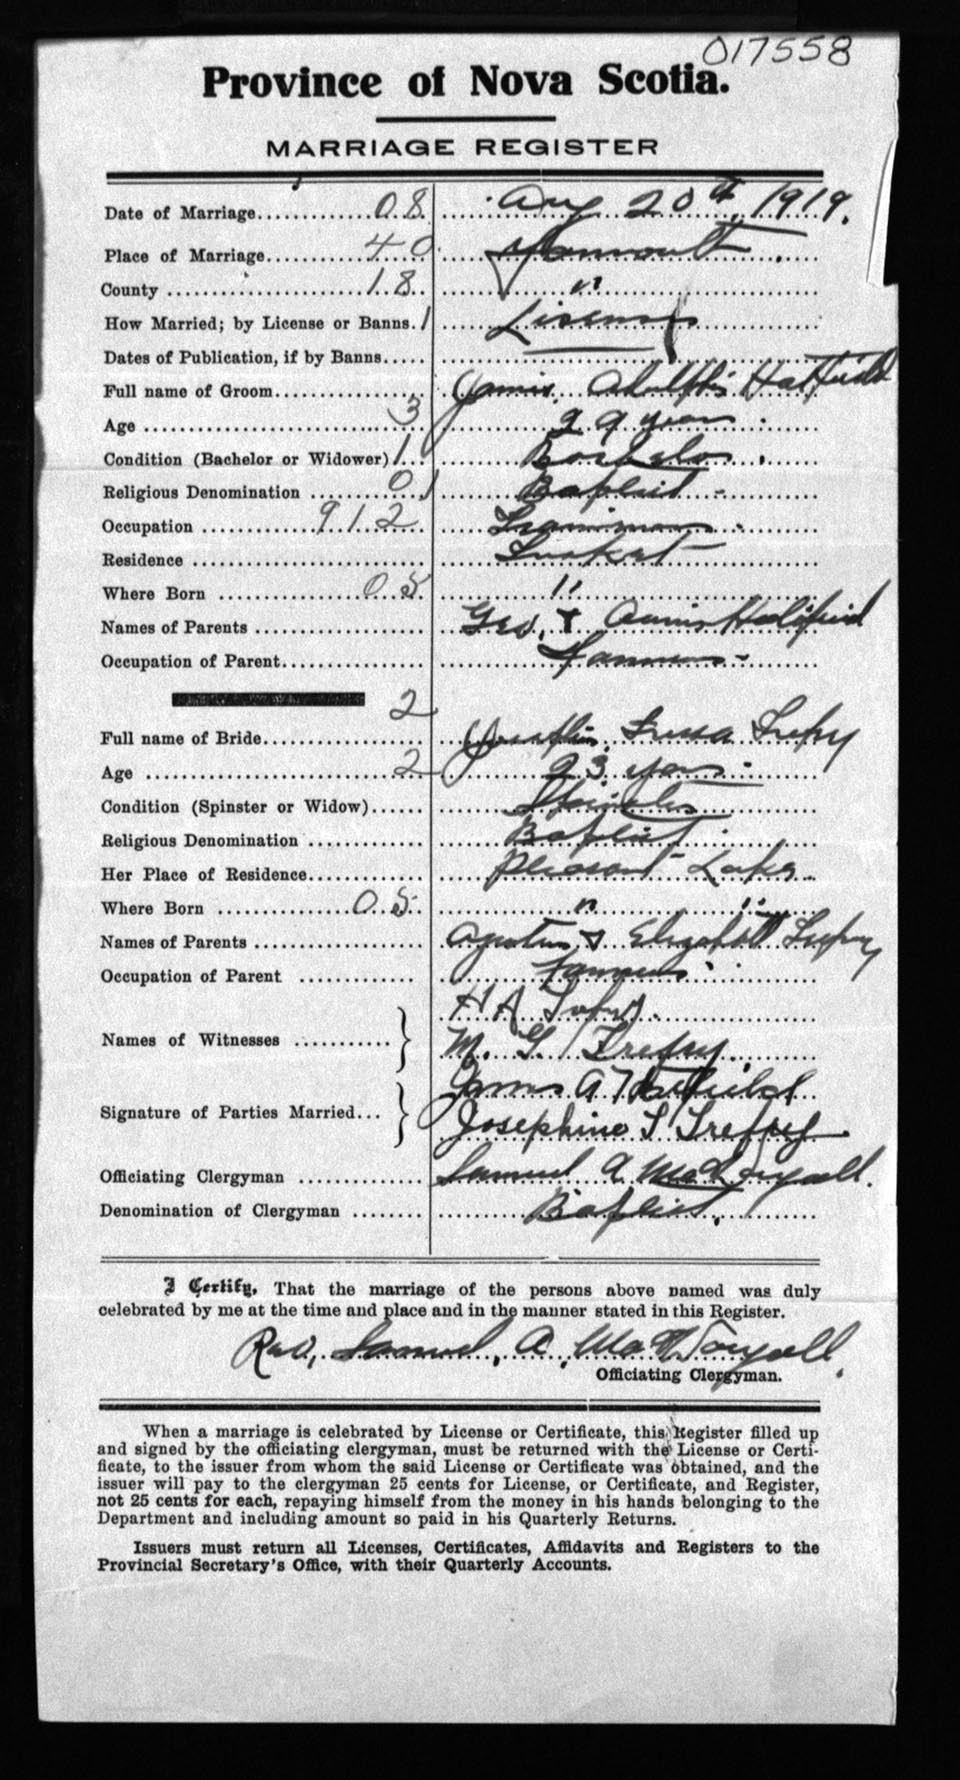 017558
Province of Nova Scotia.
MARRIAGE REGISTER
Date of Marriage 08 Aug 20th, 1919.
Place of Marriage 40 Yarmouth
County 18 "
How Married; by License or Banns. 1 License
Dates of Publication, if by Banns
Full name of Groom James Adolphis Hatfield
Age 3 29 years
Condition (Bachelor or Widower) 1 Bachelor
Religious Denomination 01 Baptist
Occupation 912
Residence Tusket
Where Born 05 "
Names of Parents Geo. & Hatfield
Occupation of Parent
2
Full name of Bride Trefry
Age 2 23 years
Condition (Spinster or Widow) Spinster
Religious Denomination Baptist
Her Place of Residence Pleasant Lake
Where Born 05 " "
Names of Parents & Elizabeth Trefry
Occupation of Parent
H A
Names of Witnesses
M. G. Trefry
James A Hatfield
Signature of Parties Married
Josephine T Trefry
Officiating Clergyman Samuel A
Denomination of Clergyman Baptist
I Certify, That the marriage of the persons above named was duly
celebrated by me at the time and place and in the manner stated in this Register.
Rev. Samuel. A.
Officiating Clergyman.
When a marriage is celebrated by License or Certificate, this Register filled up
and signed by the officiating clergyman, must be returned with the License or Certi-
ficate, to the issuer from whom the said License or Certificate was obtained, and the
issuer will pay to the clergyman 25 cents for License, or Certificate, and Register,
not 25 cents for each, repaying himself from the money in his hands belonging to the
Department and including amount so paid in his Quarterly Returns.
Issuers must return all Licenses, Certificates, Affidavits and Registers to the
Provincial Secretary's Office, with their Quarterly Accounts.